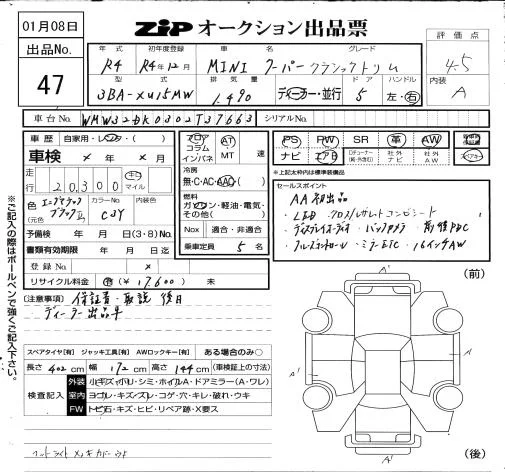 01月08日
出品No.
47
ZiP オークション出品票
年式 初年度登録 車名 グレード
R4 R4年12月 MINI クーパークラシックトリム
型式 排気量 ドア ハンドル
3BA-XU15MW 1.490 ディーカー・並行 5 左・右
評価点
4.5
内装
A
車台No. WMW32DK0302T37663 シリアルNo.
車歴 自家用・レンタ・( )
車検 × 年 × 月
走行 20,300 km マイル
色 エニグマティックブラックM カラーNo. C3Y 内装色
(元色 )
予備検 年 月 日(3・8)No.
書類有効期限 年 月 日
登録No.
リサイクル料金 有 ¥17,600 未
フロア コラム インパネ AT MT 速
冷房
無・C・AC・AAC
燃料
ガソリン・軽油・電気・その他( )
Nox 適合・非適合
乗車定員 5 名
PS PW SR 革 AW
ナビ エアB 社外ナビ 社外AW
スペアキー
※上記太枠内は標準装備品
セールスポイント
AA初出品
・LED
・バックカメラ 前後PDC
・クルーズコントロール ・ミラーETC ・16インチAW
〔注意事項〕 保証書・取説 後日
ディーラー出品車
スペアタイヤ[有] ジャッキ工具[有] AWロックキー[有] ある場合のみ○
長さ 402 cm 幅 172 cm 高さ 144 cm (車検証上の寸法)
検査記入
外装 小キズ・小リ・シミ・ホイルA・ドアミラー(A・ワレ)
室内 ヨゴレ・キズ・スレ・コゲ・穴・キレ・破れ・ウキ
FW トビ石・キズ・ヒビ・リペア跡・X要ス
(前)
A'
A'
A'
A'
(後)
※ご記入の際はボールペンで強くご記入下さい。